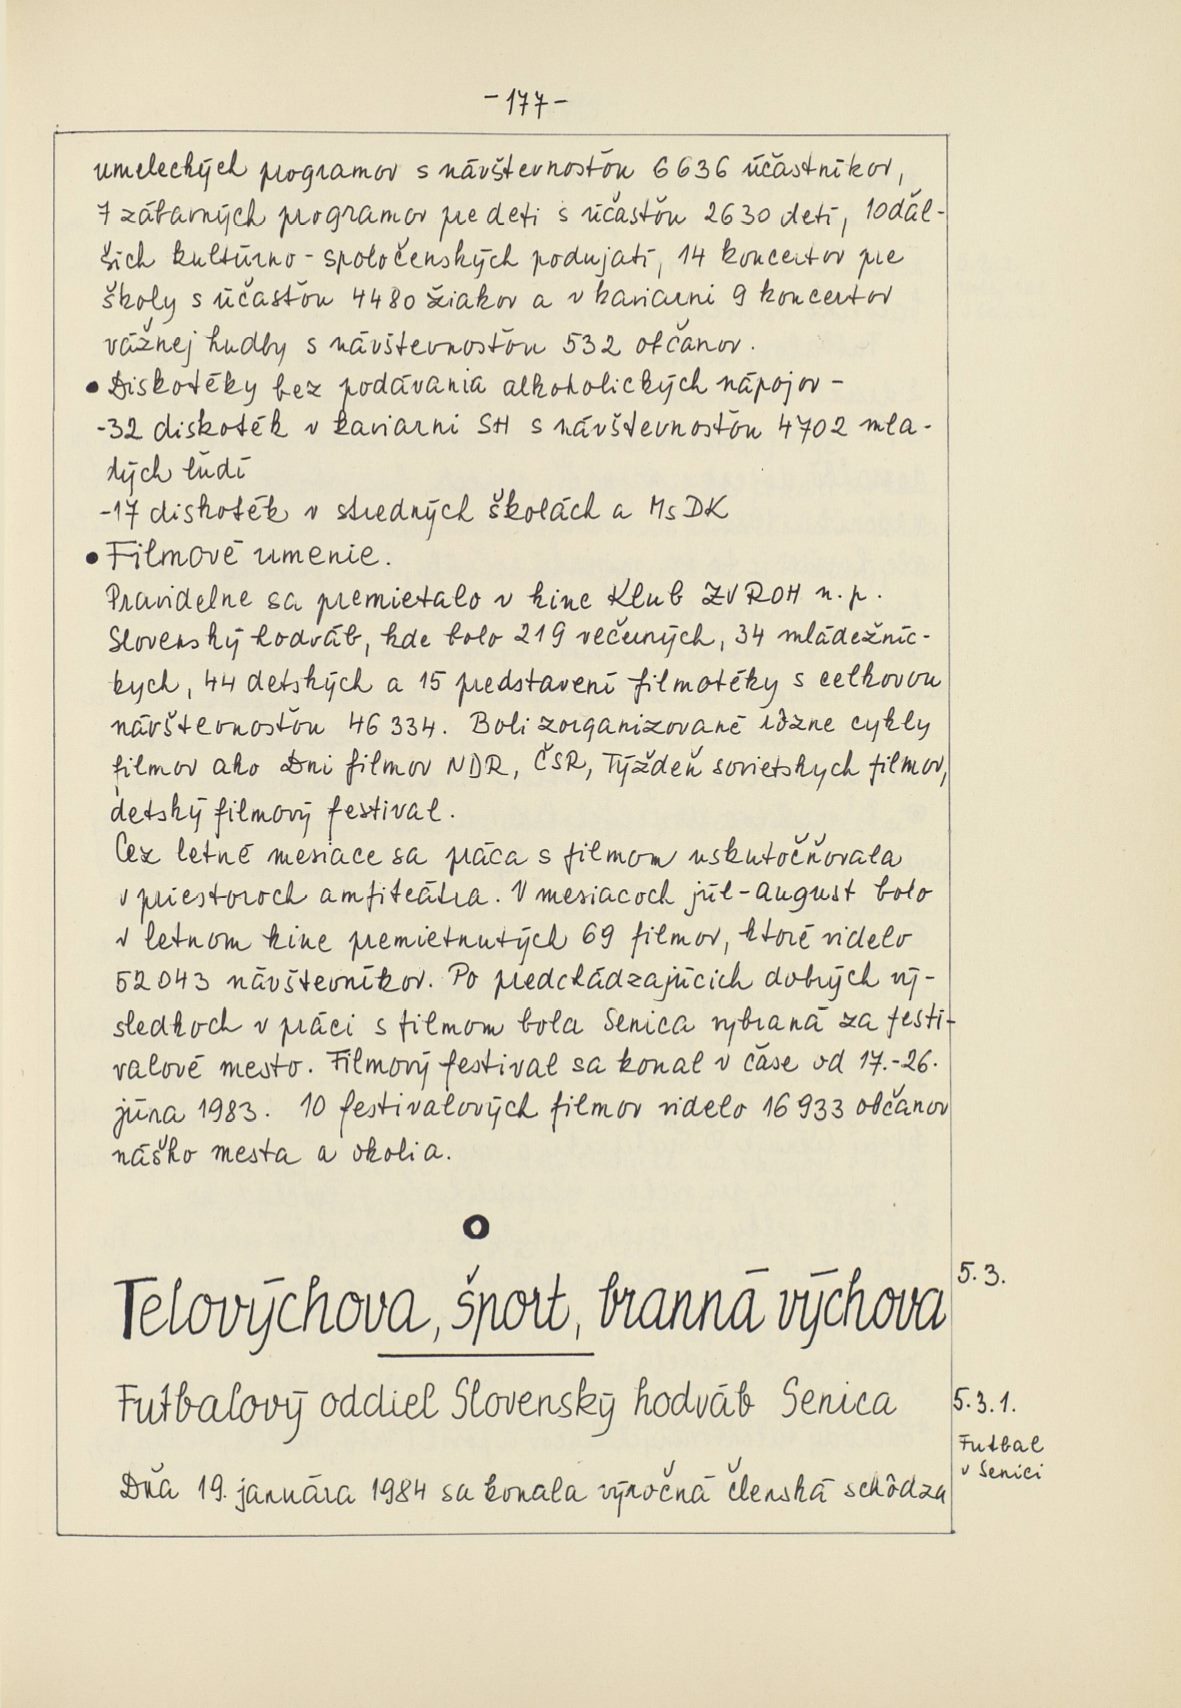 -177-
umeleckých programov s návštevnosťou 6636 účastníkov,
7 zábavných programov pre deti s účasťou 2630 detí, 10 ďal-
ších kultúrno - spoločenských podujatí, 14 koncertov pre
školy s účasťou 4480 žiakov a v kaviarni 9 koncertov
vážnej hudby s návštevnosťou 532 občanov.
• Diskotéky bez podávania alkoholických nápojov -
-32 diskoték v kaviarni SH s návštevnosťou 4702 mla-
dých ľudí
-17 diskoték v stredných školách a MsDK
• Filmové umenie.
Pravidelne sa premietalo v kine Klub ZV ROH n. p.
Slovenský hodváb, kde bolo 219 večerných, 34 mládežníc-
kych, 44 detských a 15 predstavení filmotéky s celkovou
návštevnosťou 46 334. Boli zorganizované rôzne cykly
filmov ako Dni filmov NDR, ČSR, Týždeň sovietskych filmov,
detský filmový festival.
Cez letné mesiace sa práca s filmom uskutočňovala
v priestoroch amfiteátra. V mesiacoch júl - august bolo
v letnom kine premietnutých 69 filmov, ktoré videlo
52 043 návštevníkov. Po predchádzajúcich dobrých vý-
sledkoch v práci s filmom bola Senica vybraná za festi-
valové mesto. Filmový festival sa konal v čase od 17.-26.
júna 1983. 10 festivalových filmov videlo 16 933 občanov
nášho mesta a okolia.
Telovýchova, šport, branná výchova
5.3.
Futbalový oddiel Slovenský hodváb Senica
5.3.1.
Futbal
v Senici
Dňa 19. januára 1984 sa konala výročná členská schôdza